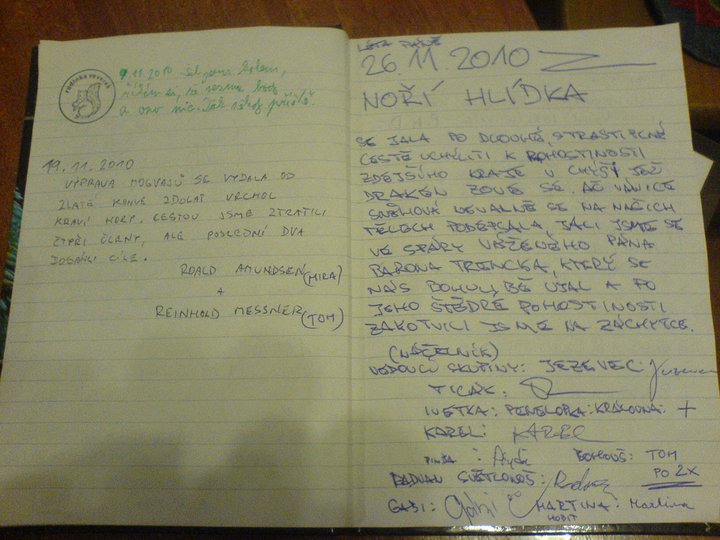 9.11.2010 šel jsem kolem,
a ono nic. Tak někdy příště.
19.11.2010
VÝPRAVA MOGVAJŮ SE VYDALA OD
ZLATÉ KONVE ZDOLAT VRCHOL
KRAVÍ HORY. CESTOU JSME ZTRATILI
ČTYŘI ČLENY, ALE POSLEDNÍ DVA
DOSÁHLI CÍLE.
ROALD AMUNDSEN (MIRA)
+
REINHOLD MESSNER (TOM)
LÉTA PÁNĚ
26 11.2010
NOŘÍ HLÍDKA
SE JALA PO DLOUHÉ, STRASTIPLNÉ
CESTĚ UCHÝLITI K POHOSTINOSTI
ZDEJŠÍHO KRAJE V CHÝŠI JEŽ
DRAKEN ZOVE SE. AČ VÁNICE
SNĚHOVÁ NA NAŠICH
TĚLECH PODEPSALA, JALI JSME SE
VE SPÁRY VÁŽENÉHO PÁNA
BARONA TRENCKA, KTERÝ SE
NÁS UJAL A PO
JEHO ŠTĚDRÉ POHOSTINOSTI
ZAKOTVILI JSME NA ZÁCHYTCE.
(NÁČELNÍK)
VEDOUCÍ SKUPINY: JEZEVEC:
TICÁK:
IVETKA: PENELOPKA: KRÁLOVNA: +
KAREL: KAREL
BOHOUŠ: TOM
PO 2X
RADVAN SVĚTLONOŠ:
GABI: Gabi MARTINA: Martina
HOBIT